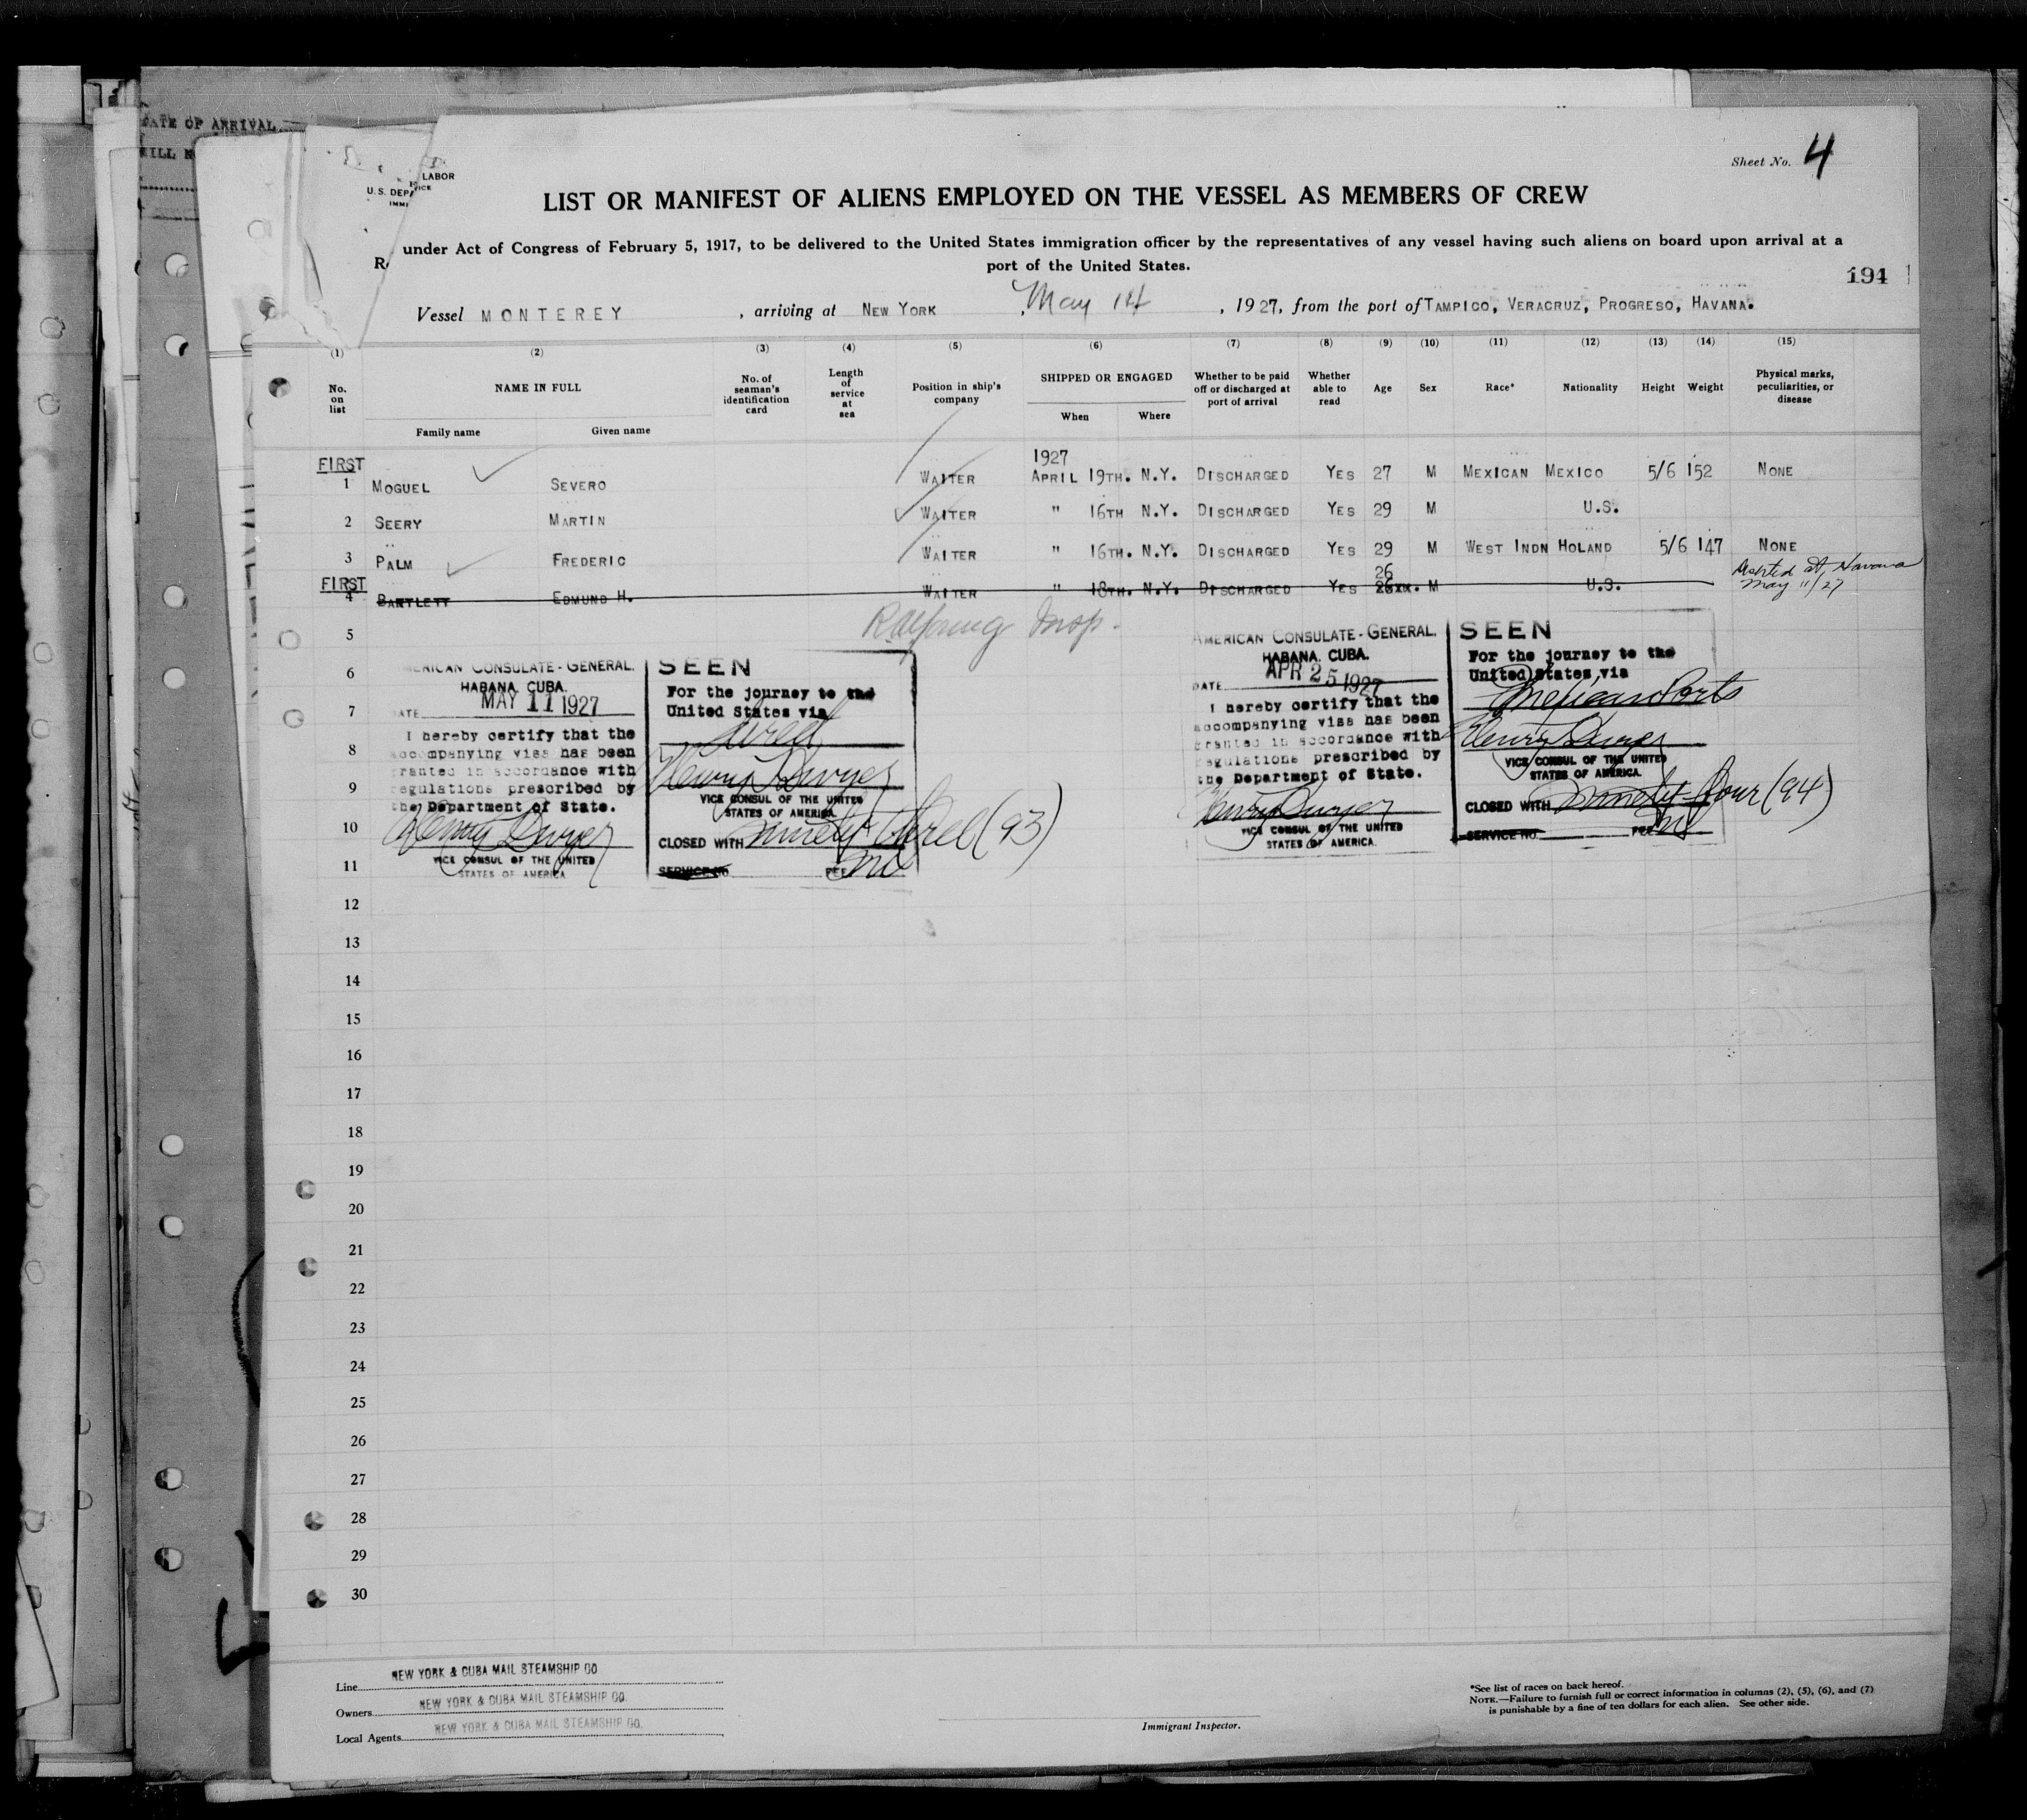 DATE OF ARRIVAL
LABOR
U.S. DEPA
VICE
IMMI
Sheet No. 4
LIST OR MANIFEST OF ALIENS EMPLOYED ON THE VESSEL AS MEMBERS OF CREW
under Act of Congress of February 5, 1917, to be delivered to the United States immigration officer by the representatives of any vessel having such aliens on board upon arrival at a
port of the United States.
194
Vessel MONTEREY, arriving at NEW YORK, May 14, 1927, from the port of TAMPICO, VERACRUZ, PROGRESO, HAVANA.
(1) (2) (3) (4) (5) (6) (7) (8) (9) (10) (11) (12) (13) (14) (15)
No. on list NAME IN FULL No. of seaman's identification card Length of service at sea Position in ship's company SHIPPED OR ENGAGED Whether to be paid off or discharged at port of arrival Whether able to read Age Sex Race* Nationality Height Weight Physical marks, peculiarities, or disease
Family name Given name When Where
FIRST 1927
1 MOGUEL SEVERO WAITER APRIL 19TH. N.Y. DISCHARGED YES 27 M MEXICAN MEXICO 5/6 152 NONE
2 SEERY MARTIN WAITER " 16TH N.Y. DISCHARGED YES 29 M U.S.
3 PALM FREDERIC WAITER " 16TH. N.Y. DISCHARGED YES 29 M WEST INDN HOLAND 5/6 147 NONE
FIRST 26
4 BARTLETT EDMUND H. WAITER " 18TH. N.Y. DISCHARGED YES M U.S. Deserted at Havana
May 11/27
5
6
7
8
9
10
11
12
13
14
15
16
17
18
19
20
21
22
23
24
25
26
27
28
29
30
Insp.
AMERICAN CONSULATE-GENERAL.
HABANA, CUBA.
DATE MAY 11 1927
I hereby certify that the
accompanying visa has been
granted in accordance with
regulations prescribed by
the Department of State.
Henry Dwyer
VICE CONSUL OF THE UNITED
STATES OF AMERICA
SEEN
For the journey to the
United States via
direct
Henry Dwyer
VICE CONSUL OF THE UNITED
STATES OF AMERICA.
CLOSED WITH ninety three (93)
SERVICE NO. FEE
AMERICAN CONSULATE-GENERAL.
HABANA, CUBA.
DATE APR 25 1927
I hereby certify that the
accompanying visa has been
granted in accordance with
regulations prescribed by
the Department of State.
Henry Dwyer
VICE CONSUL OF THE UNITED
STATES OF AMERICA.
SEEN
For the journey to the
United States via
Mexican Ports
Henry Dwyer
VICE CONSUL OF THE UNITED
STATES OF AMERICA.
CLOSED WITH ninety-four (94)
SERVICE NO. FEE
Line NEW YORK & CUBA MAIL STEAMSHIP CO
Owners NEW YORK & CUBA MAIL STEAMSHIP CO.
Local Agents NEW YORK & CUBA MAIL STEAMSHIP CO.
Immigrant Inspector.
*See list of races on back hereof.
NOTE.—Failure to furnish full or correct information in columns (2), (5), (6), and (7)
is punishable by a fine of ten dollars for each alien. See other side.